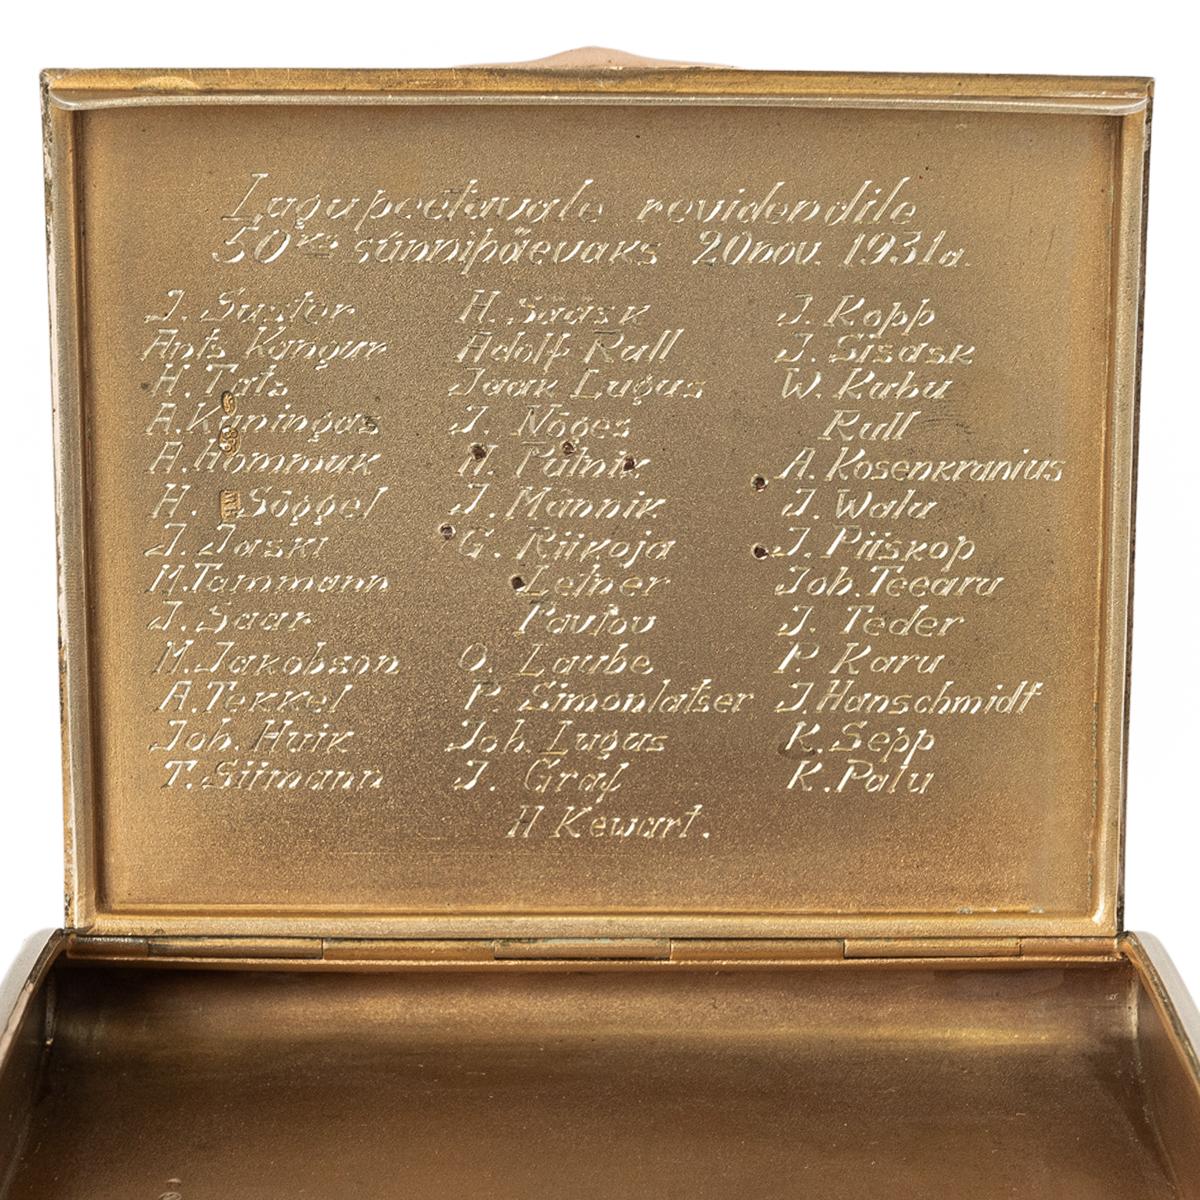 Lugupeetavale revidendile
50ks sünnipäevaks 20 nov. 1931 a.
J. Suster
Ants Kangur
H. Tats
A. Kuningas
A. Hommuk
H. Söggel
J. Jaski
M. Tammann
J. Saar
M. Jakobson
A. Tekkel
Joh. Huik
T. Siimann
H. Sääsk
Adolf Rull
Jaak Lugus
J. Nõges
H. Putnik
J. Männik
G. Riikoja
Leiner
Pavlov
O. Laube
P. Simonlatser
Joh. Lugus
J. Graf
J. Kopp
J. Sisask
W. Kubu
Rull
A. Rosenkranius
J. Walu
J. Piiskop
Joh. Teearu
J. Teder
P. Karu
J. Hanschmidt
K. Sepp
K. Palu
H Kewart.